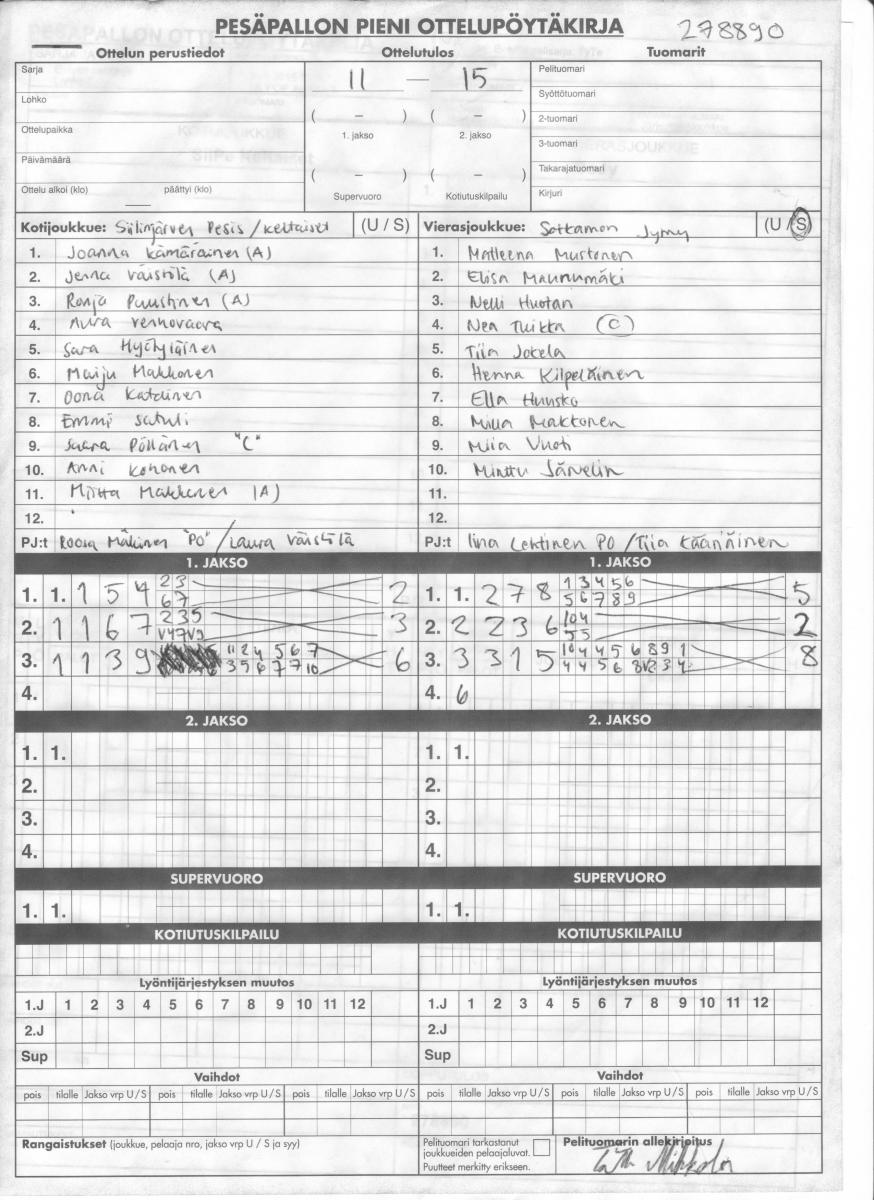 PESÄPALLON PIENI OTTELUPÖYTÄKIRJA
278890
Ottelun perustiedot Ottelutulos Tuomarit
Sarja 11 – 15 Pelituomari
Lohko Syöttötuomari
( – ) ( – ) 2-tuomari
Ottelupaikka 1. jakso 2. jakso 3-tuomari
Päivämäärä ( – ) ( – ) Takarajatuomari
Ottelu alkoi (klo) päättyi (klo) Supervuoro Kotiutuskilpailu Kirjuri
Kotijoukkue: Siilinjärven Pesis / keltaiset (U / S) Vierasjoukkue: Sotkamon Jymy (U / S)
1. Joanna Kämäräinen (A) 1. Matleena Mustonen
2. Jenna Väistölä (A) 2. Elisa Maunumäki
3. Ronja Puustinen (A) 3. Nelli Huotari
4. Aura Venhovaara 4. Nea Tuikka (C)
5. Sara Hyötyläinen 5. Tiia Jokela
6. Maiju Makkonen 6. Henna Kilpeläinen
7. Oona Katainen 7. Ella Huusko
8. Emmi Satuli 8. Milla Makkonen
9. Saara Pöllänen "C" 9. Miia Vuoti
10. Anni Kohonen 10. Minttu Särvelin
11. Miitta Makkonen (A) 11.
12. 12.
PJ:t Roosa Mäkinen "PO" / Laura Väistölä PJ:t Iina Lehtinen PO / Tiia Kääriäinen
1. JAKSO 1. JAKSO
1. 1. 1 5 4 2 3 2 1. 1. 2 7 8 1 3 4 5 6 5
6 7 5 6 7 8 9
2. 1 1 6 7 2 3 5 3 2. 2 2 3 6 10 4 2
V4 7 V9 5 5
3. 1 1 3 9 11 2 4 5 6 7 6 3. 3 3 1 5 10 4 4 5 6 8 9 1 8
3 5 6 7 7 10 4 4 5 6 8 V2 3 4
4. 4. 6
2. JAKSO 2. JAKSO
1. 1. 1. 1.
2. 2.
3. 3.
4. 4.
SUPERVUORO SUPERVUORO
1. 1. 1. 1.
KOTIUTUSKILPAILU KOTIUTUSKILPAILU
Lyöntijärjestyksen muutos Lyöntijärjestyksen muutos
1.J 1 2 3 4 5 6 7 8 9 10 11 12 1.J 1 2 3 4 5 6 7 8 9 10 11 12
2.J 2.J
Sup Sup
Vaihdot Vaihdot
pois tilalle Jakso vrp U / S pois tilalle Jakso vrp U / S pois tilalle Jakso vrp U / S pois tilalle Jakso vrp U / S pois tilalle Jakso vrp U / S pois tilalle Jakso vrp U / S
Rangaistukset (joukkue, pelaaja nro, jakso vrp U / S ja syy) Pelituomari tarkastanut Pelituomarin allekirjoitus
joukkueiden pelaajaluvat.
Puutteet merkitty erikseen.